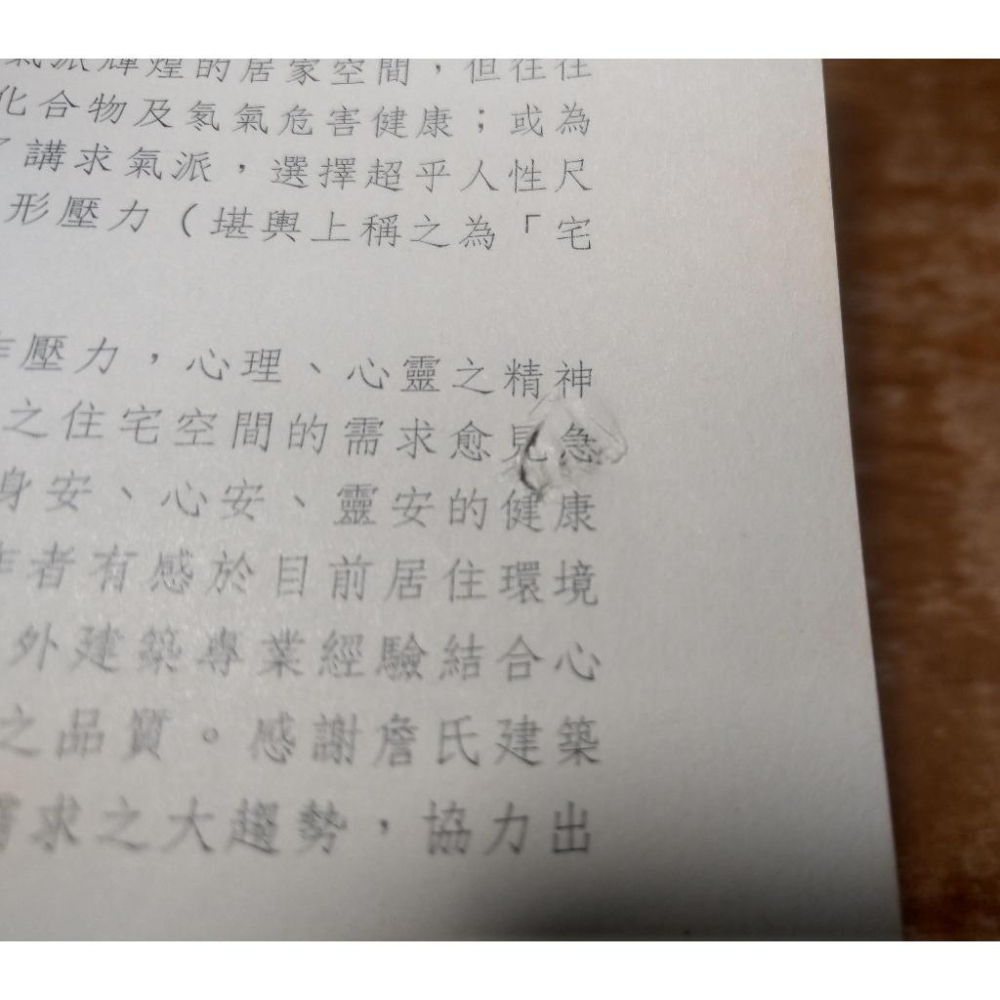 氣派輝煌的居家空間，但往往
化合物及氡氣危害健康；或為
了講求氣派，選擇超乎人性尺
形壓力（堪輿上稱之為「宅
作壓力，心理、心靈之精神
之住宅空間的需求愈見急
身安、心安、靈安的健康
作者有感於目前居住環境
外建築專業經驗結合心
之品質。感謝詹氏建築
需求之大趨勢，協力出